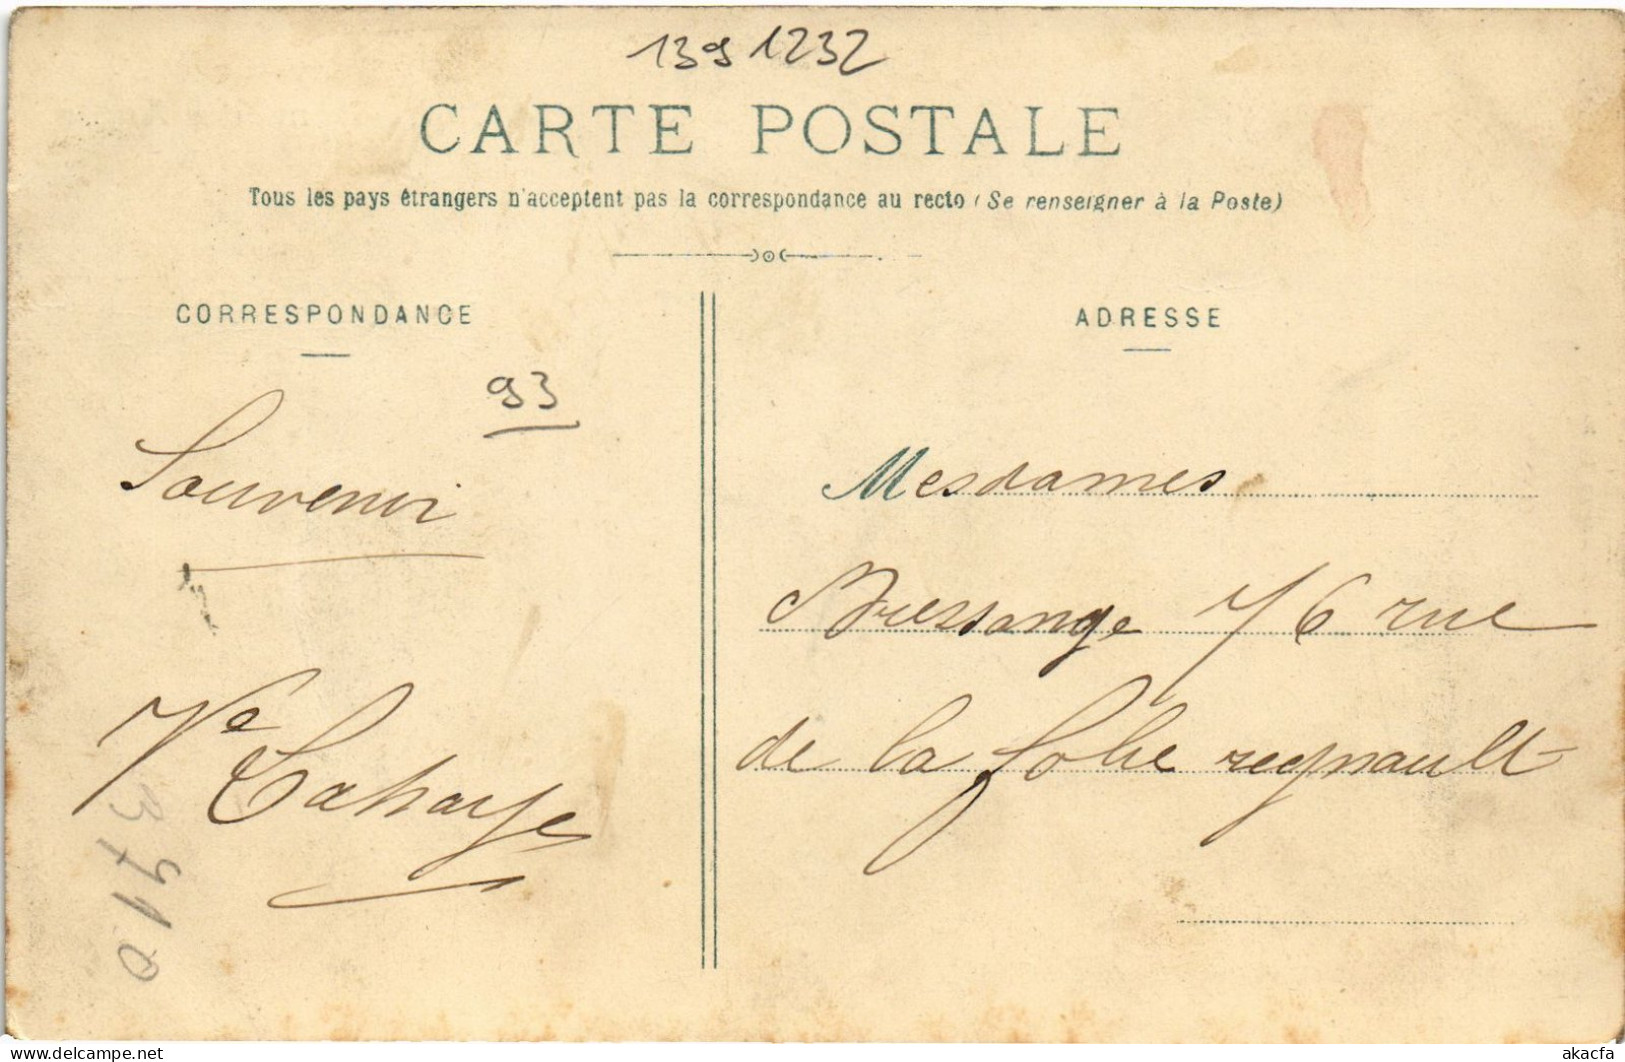 1391232
CARTE POSTALE
Tous les pays étrangers n'acceptent pas la correspondance au recto (Se renseigner à la Poste)
CORRESPONDANCE
ADRESSE
93
Souvenir
Mesdames
76 rue
de la folie regnault
Ve
3791 D
delcampe.net
akacfa